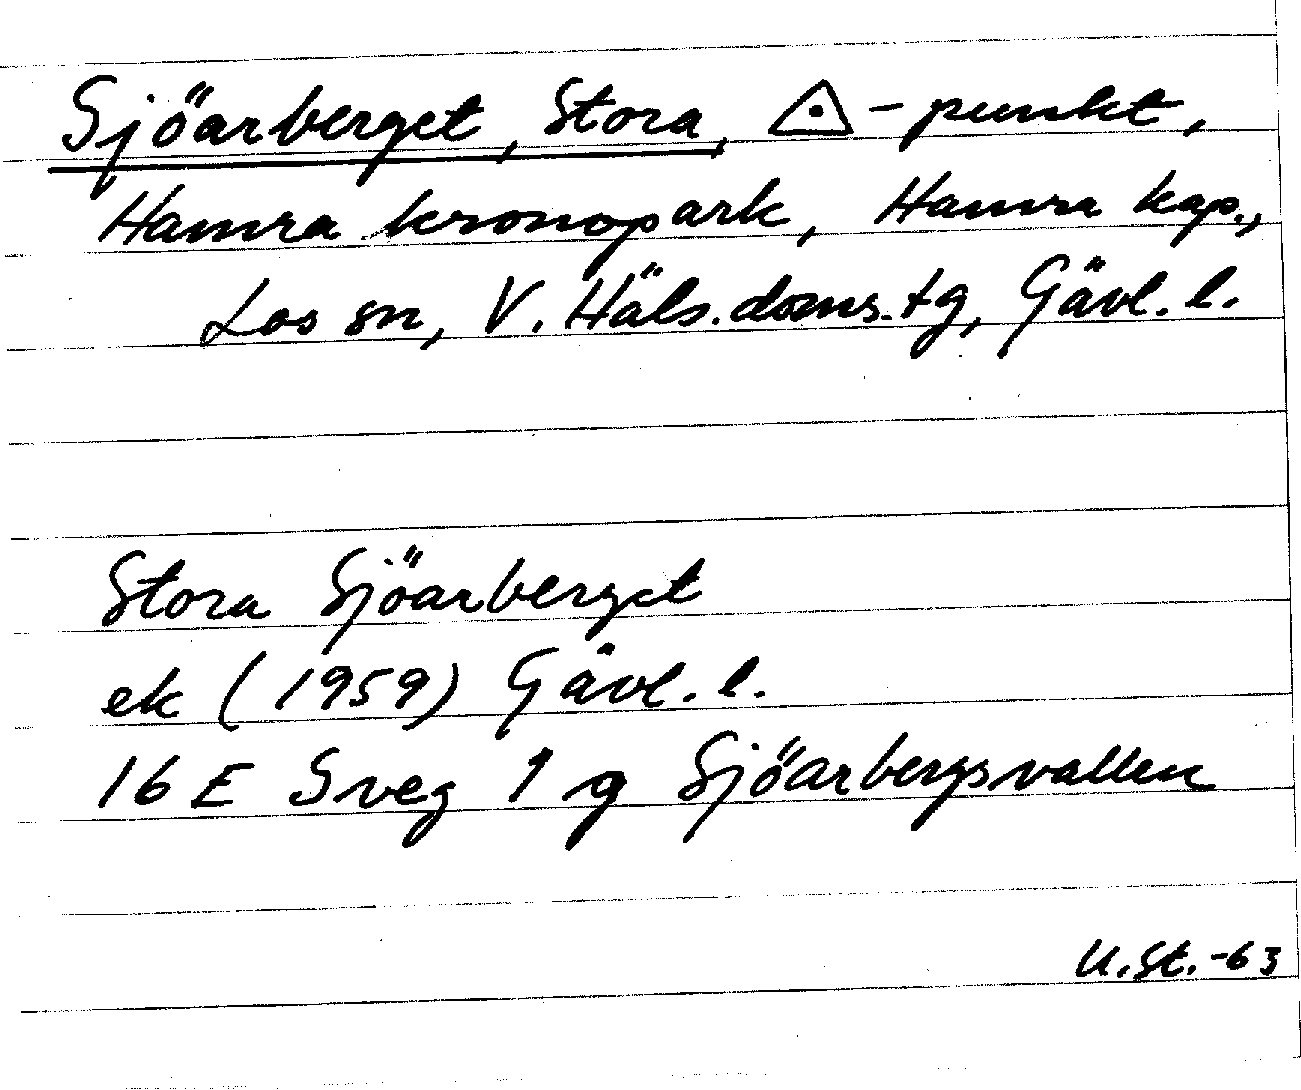 Sjöarberget, Stora, ◬-punkt,
Hamra kronopark, Hamra kap.,
Los sn, V. Häls. doms. tg, Gävl. l.
Stora Sjöarberget
ek (1959) Gävl. l.
16 E Sveg 1 g Sjöarbergsvallen
U.St.-63